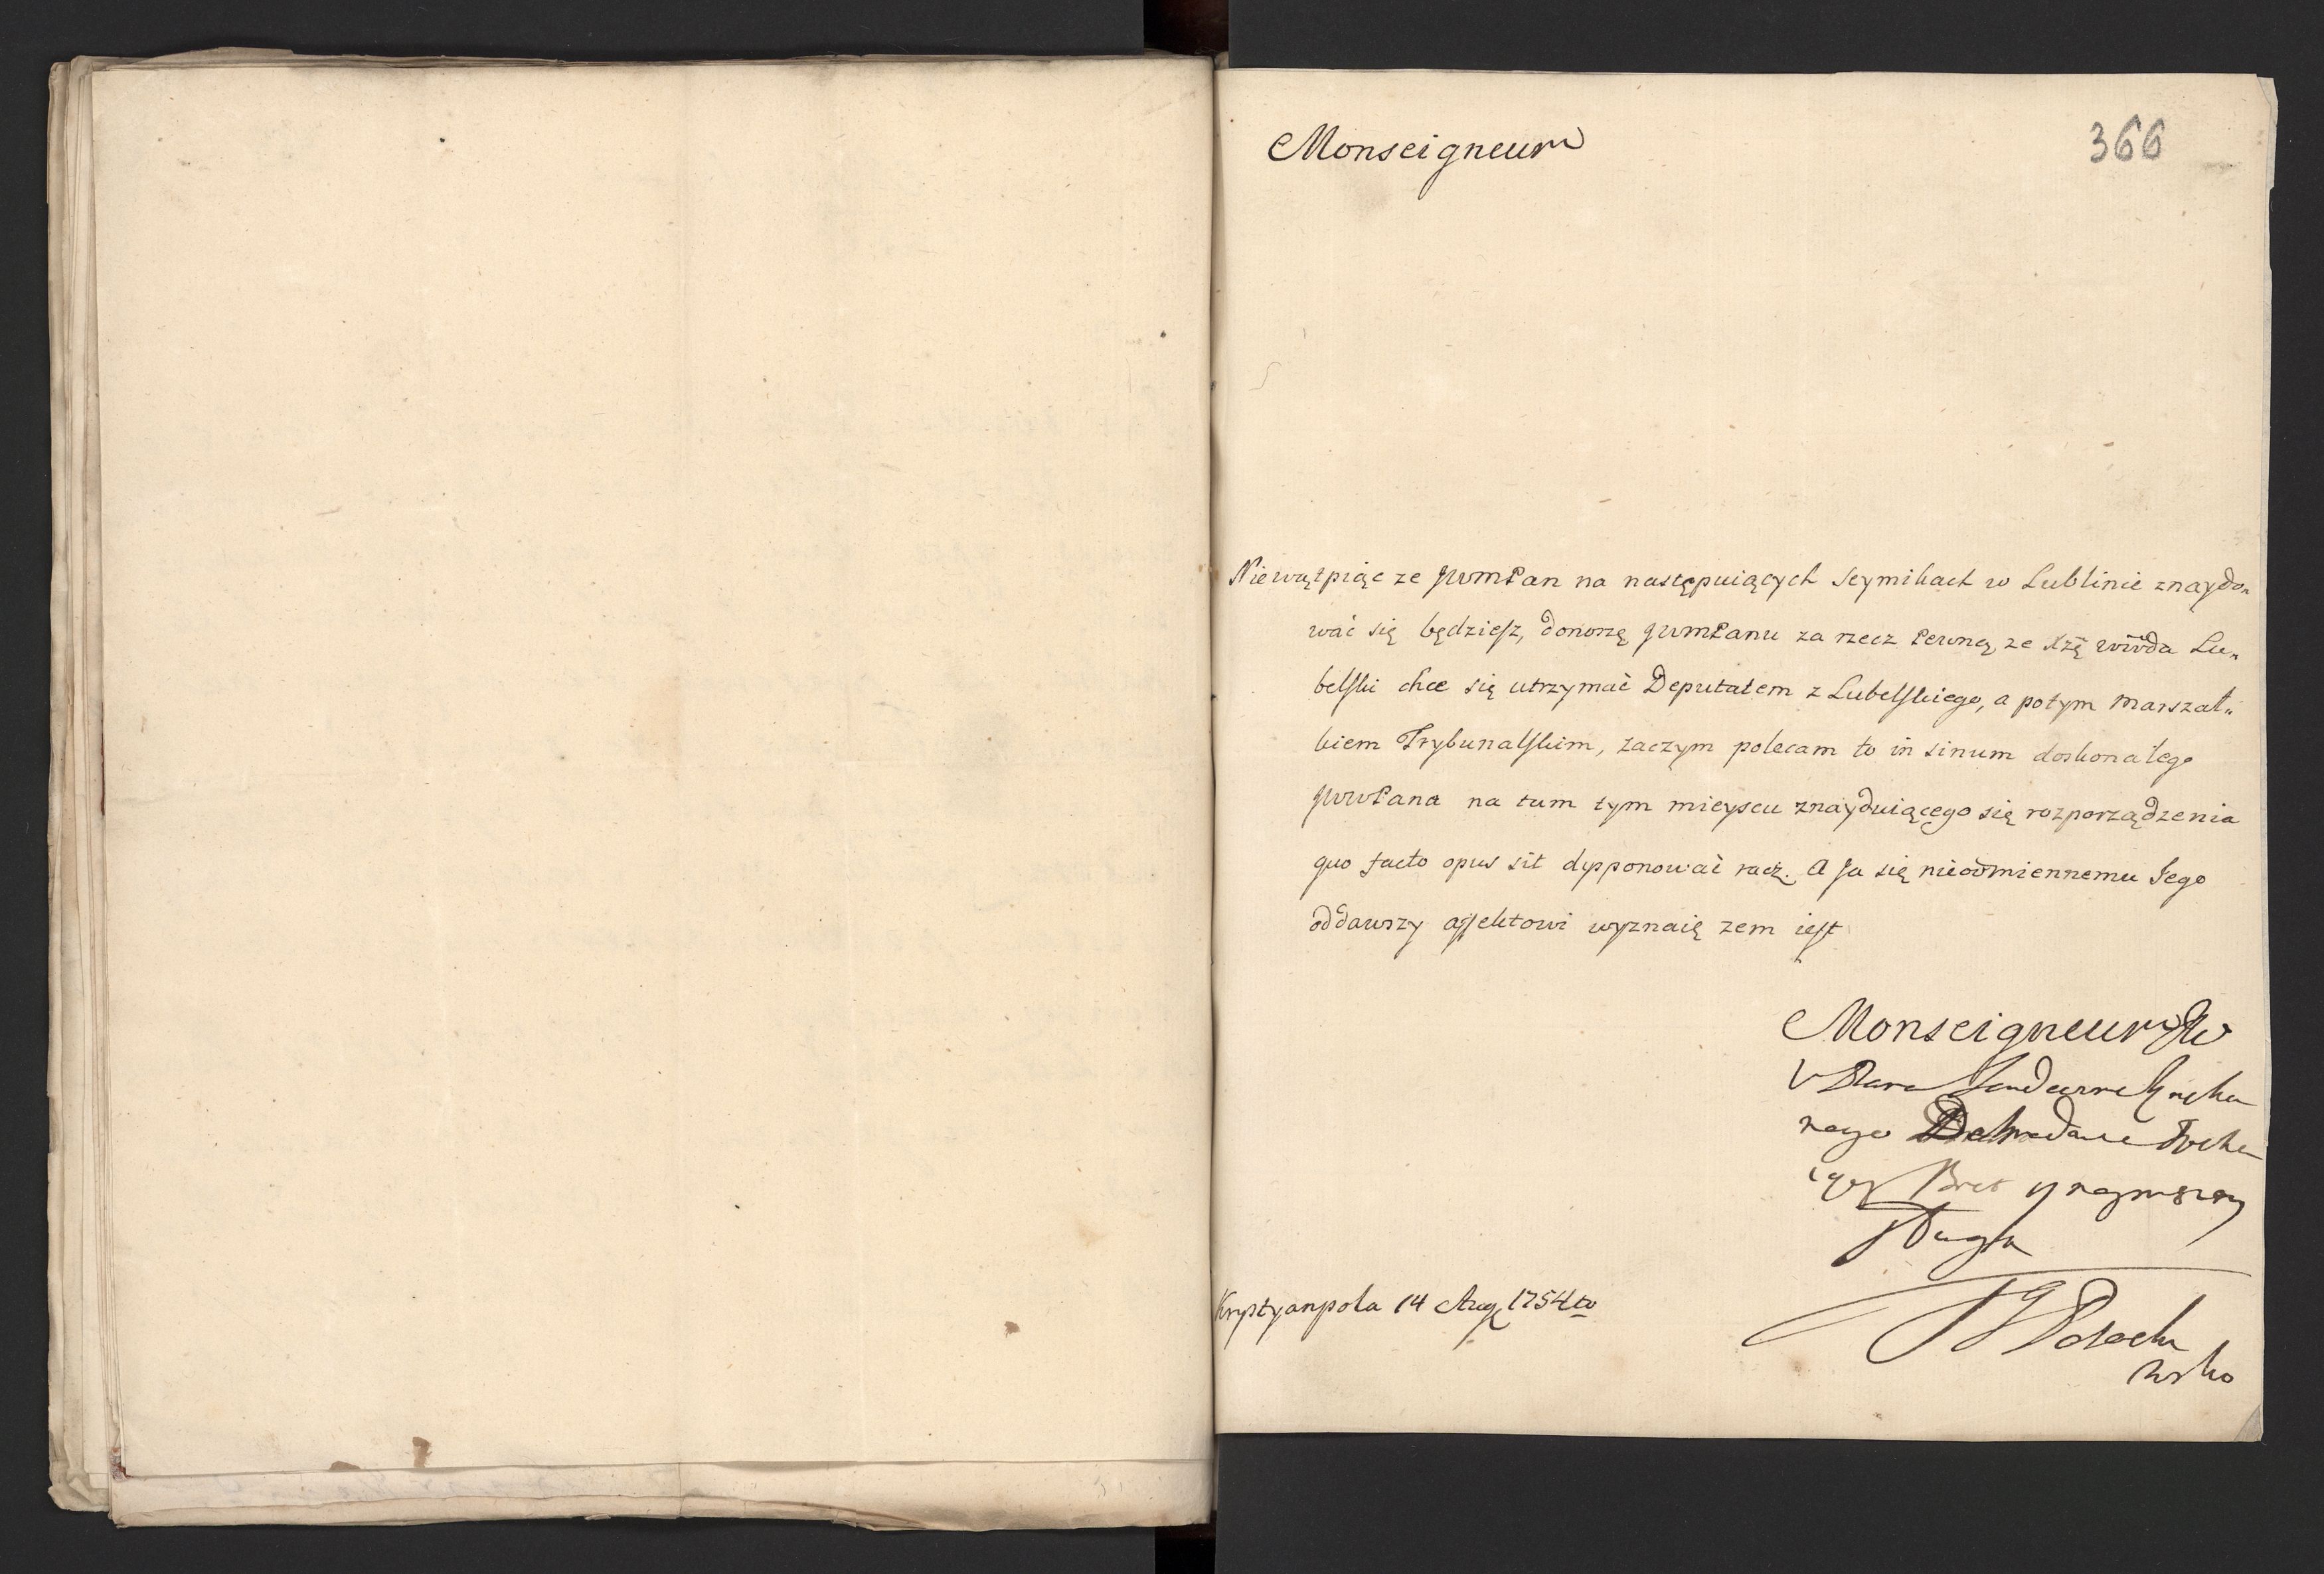 Monseigneur
366
Niewątpiąc ze JWmPan na następuiących Seymikach w Lublinie znaydo„
wać się będziesz, donoszę JWmPanu za rzecz Pewną, ze Xżę wwda Lu„
belski chce się utrzymać Deputatem z Lubelskiego, a potym Marszał„
kiem Trybunalskim, zaczym polecam to in sinum doskonałego
JWWPana na tum tym mieyscu znayduiącego się rozporządzenia
quo facto opus sit dysponować racz. A Ja się nieodmiennemu Jego
oddawszy affektowi wyznaię zem iest
Monseigneur JW
W Pana
Brat y naynizszy
sługa
Potocki
Krystyanpola 14 Aug 1754to